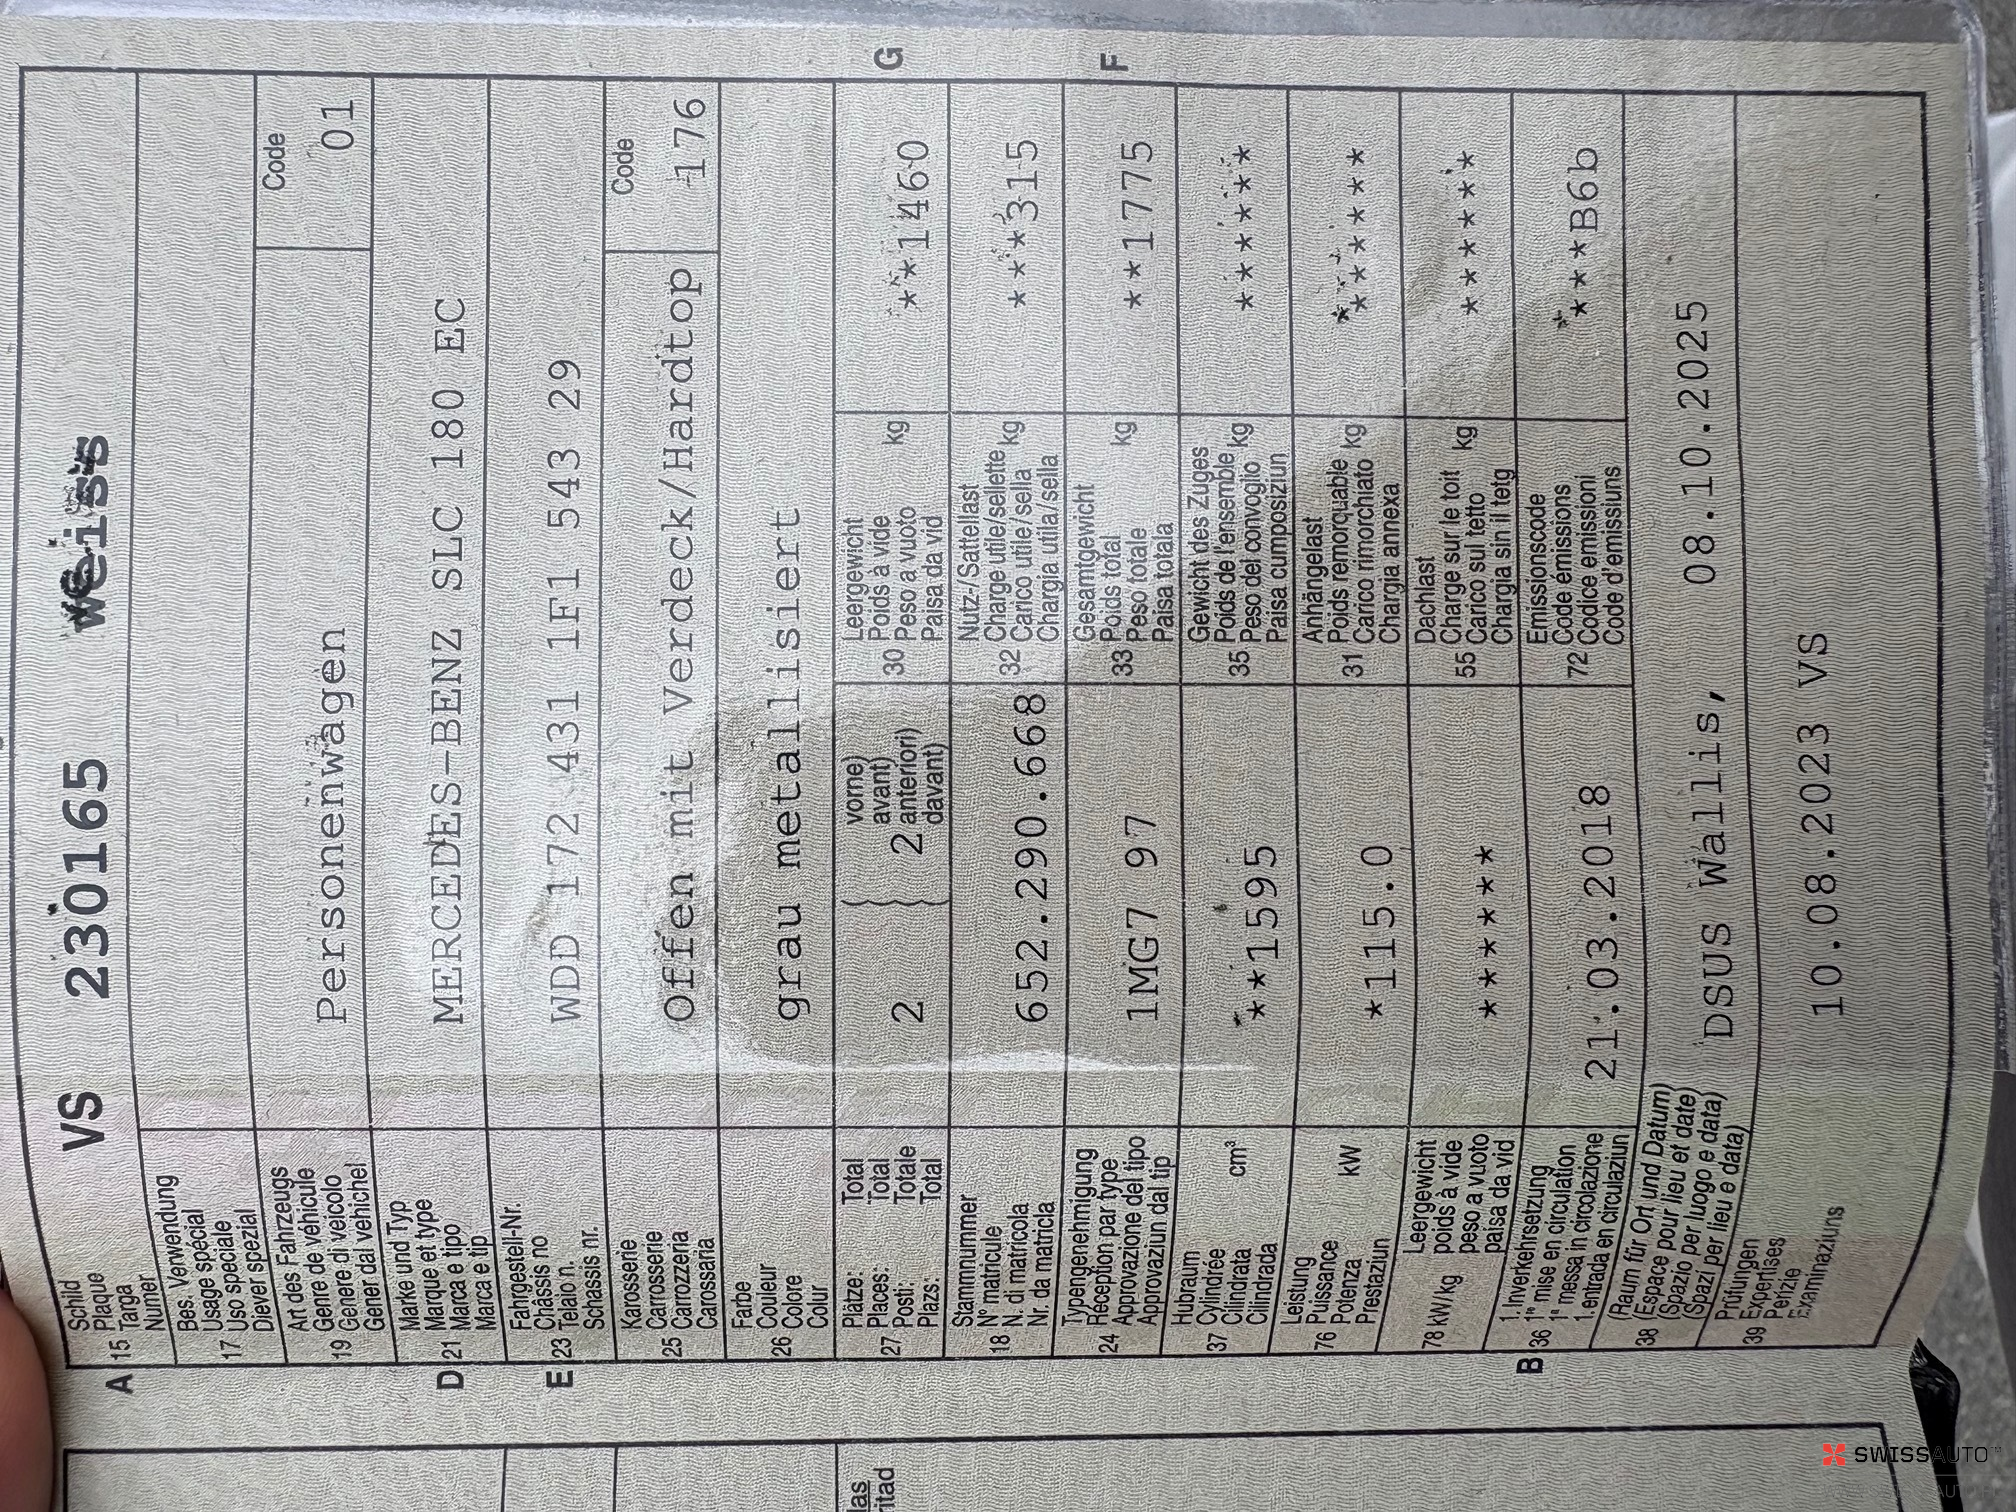 A 15 Schild
Plaque
Targa
Numer
VS 230165 weiss
17 Bes. Verwendung
Usage spécial
Uso speciale
Diever spezial
19 Art des Fahrzeugs
Genre de véhicule
Genere di veicolo
Gener dal vehichel
Personenwagen
Code
01
D 21 Marke und Typ
Marque et type
Marca e tipo
Marca e tip
MERCEDES-BENZ SLC 180 EC
E 23 Fahrgestell-Nr.
Châssis no
Telaio n.
Schassis nr.
WDD 172 431 1F1 543 29
25 Karosserie
Carrosserie
Carrozzeria
Carossaria
Offen mit Verdeck/Hardtop
Code
176
26 Farbe
Couleur
Colore
Colur
grau metallisiert
27 Plätze: Total
Places: Total
Posti: Totale
Plazs: Total
2
2
vorne)
avant)
anteriori)
davant)
30 Leergewicht
Poids à vide
Peso a vuoto
Paisa da vid
kg
**1460
G
18 Stammnummer
N° matricule
N. di matricola
Nr. da matricla
652.290.668
32 Nutz-/Sattellast
Charge utile/sellette
Carico utile/sella
Chargia utila/sella
kg
***315
24 Typengenehmigung
Réception par type
Approvazione del tipo
Approvaziun dal tip
1MG7 97
33 Gesamtgewicht
Poids total
Peso totale
Paisa totala
kg
**1775
F
37 Hubraum
Cylindrée
Cilindrata
Cilindrada
cm³
**1595
35 Gewicht des Zuges
Poids de l'ensemble
Peso del convoglio
Paisa cumposiziun
kg
******
76 Leistung
Puissance
Potenza
Prestaziun
kW
*115.0
31 Anhängelast
Poids remorquable
Carico rimorchiato
Chargia annexa
kg
******
78 kW/kg Leergewicht
poids à vide
peso a vuoto
paisa da vid
******
55 Dachlast
Charge sur le toit
Carico sul tetto
Chargia sin il tetg
kg
******
B 36 1. Inverkehrsetzung
1re mise en circulation
1a messa in circolazione
1. entrada en circulaziun
21.03.2018
72 Emissionscode
Code émissions
Codice emissioni
Code d'emissiuns
***B6b
38 (Raum für Ort und Datum)
(Espace pour lieu et date)
(Spazio per luogo e data)
(Spazi per lieu e data)
DSUS Wallis, 08.10.2025
39 Prüfungen
Expertises
Perizie
Examinaziuns
10.08.2023 VS
SWISSAUTO™